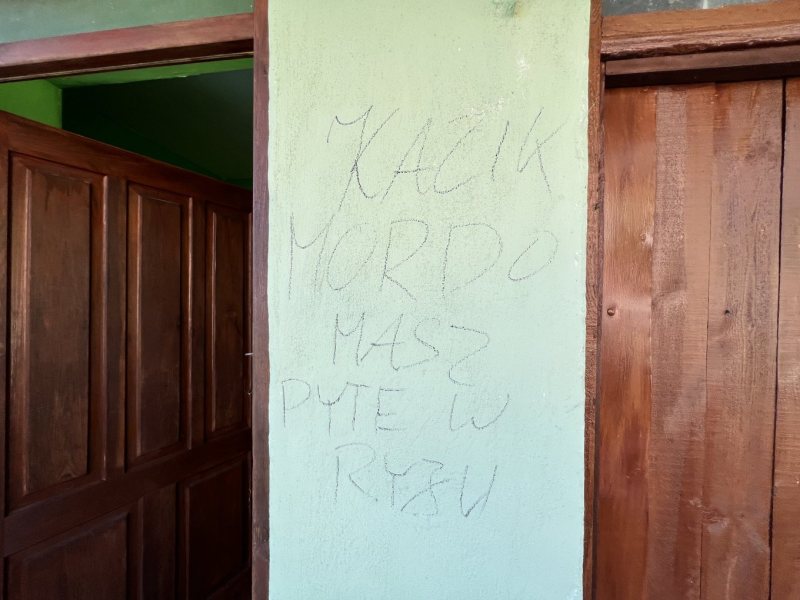 KACIK
MORDO
MASZ
PYTE W
RYŻU